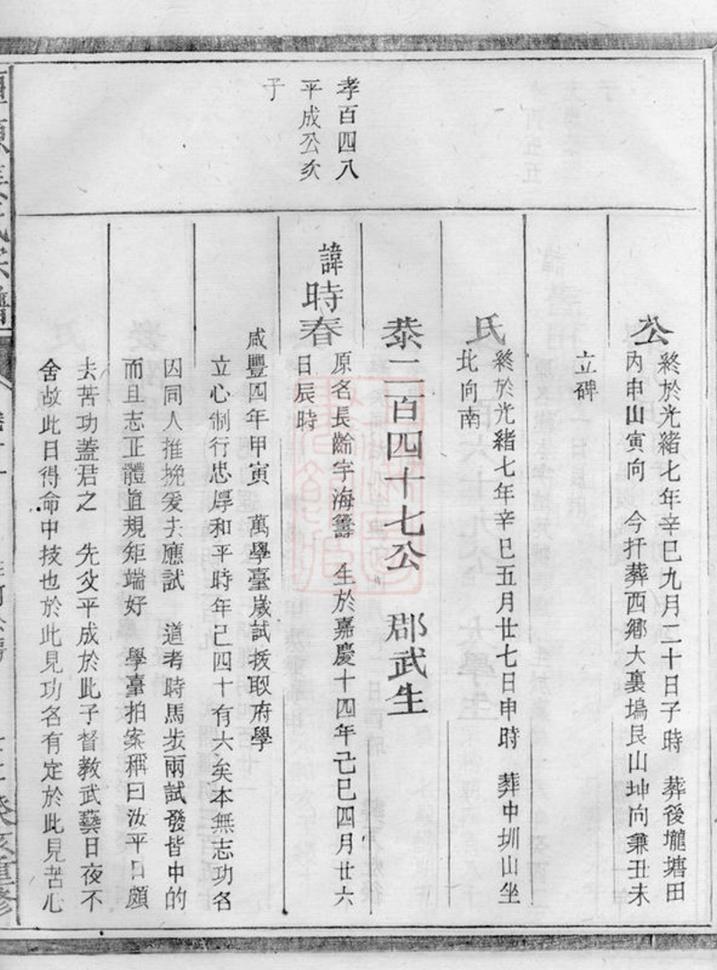 孝百四八
平成公次
子
公
終於光緒七年辛巳九月二十日子時 葬後壠塘田
內申山寅向 今扦葬西鄉大裏塢艮山坤向兼丑未
立碑
氏
終於光緒七年辛巳五月廿七日申時 葬中圳山坐
北向南
恭二百四十七公 郡武生
諱時春
原名長齡字海籌 生於嘉慶十四年己巳四月廿六
日辰時
咸豐四年甲寅 萬學臺歲試拔取府學
立心制行忠厚和平時年已四十有六矣本無志功名
因同人推挽爰去應試 道考時馬步兩試發皆中的
而且志正體直規矩端好 學臺拍案稱曰汝平日頗
去苦功蓋君之 先父平成於此子督教武藝日夜不
舍故此日得命中技也於此見功名有定於此見苦心
氏宗譜
癸亥重修